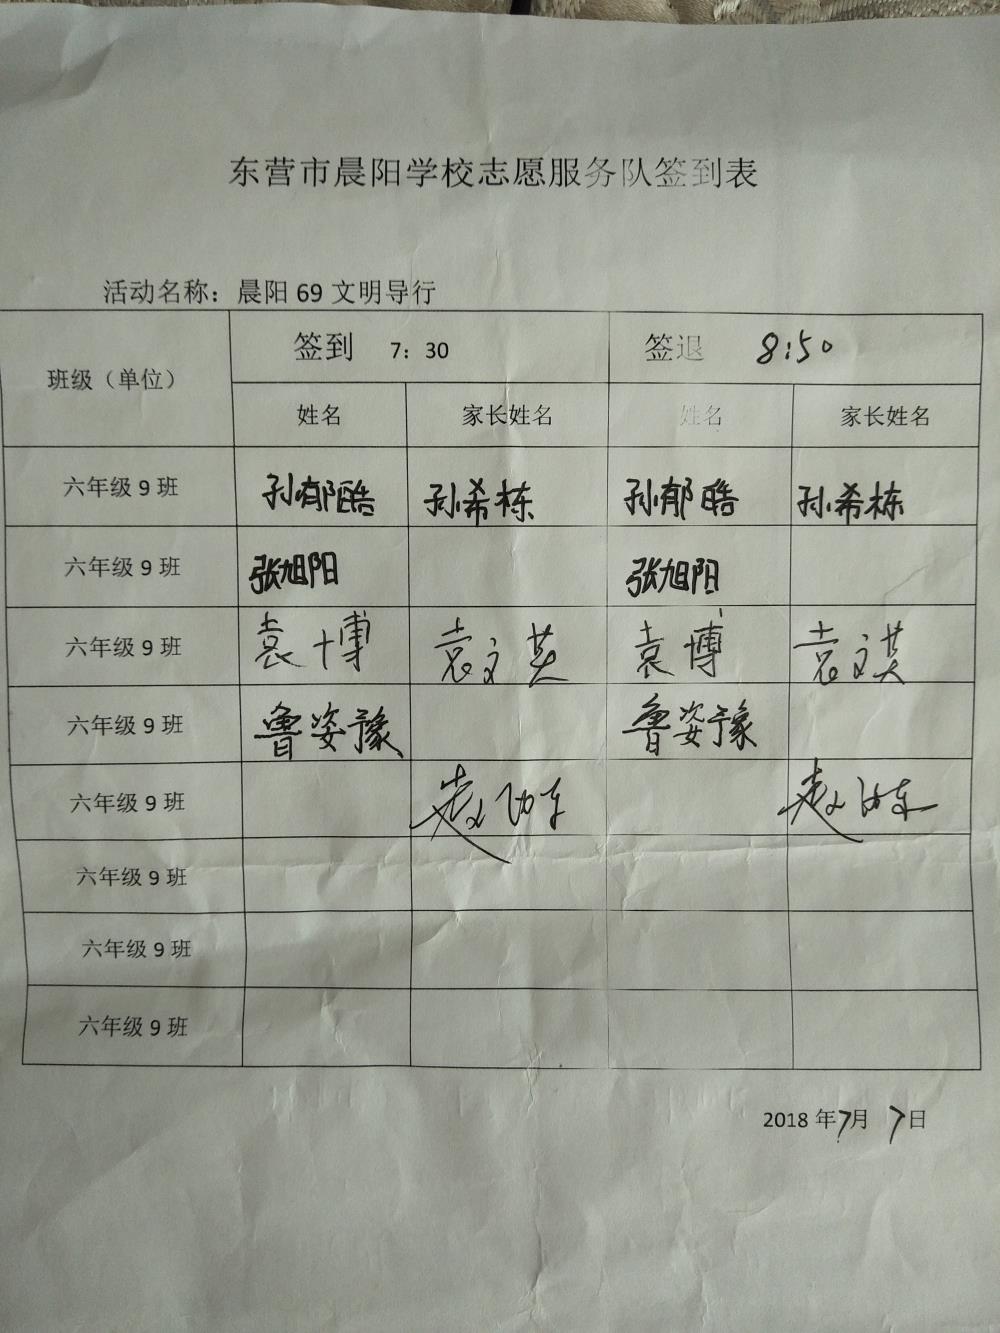 东营市晨阳学校志愿服务队签到表
活动名称：晨阳 69 文明导行
班级（单位） 签到 7：30 签退 8:50
姓名 家长姓名 姓名 家长姓名
六年级 9 班 孙郁皓 孙希栋 孙郁皓 孙希栋
六年级 9 班 张旭阳 张旭阳
六年级 9 班 袁博 袁文英 袁博 袁文英
六年级 9 班 鲁姿豫 鲁姿豫
六年级 9 班
六年级 9 班
六年级 9 班
六年级 9 班
2018 年7月 7日